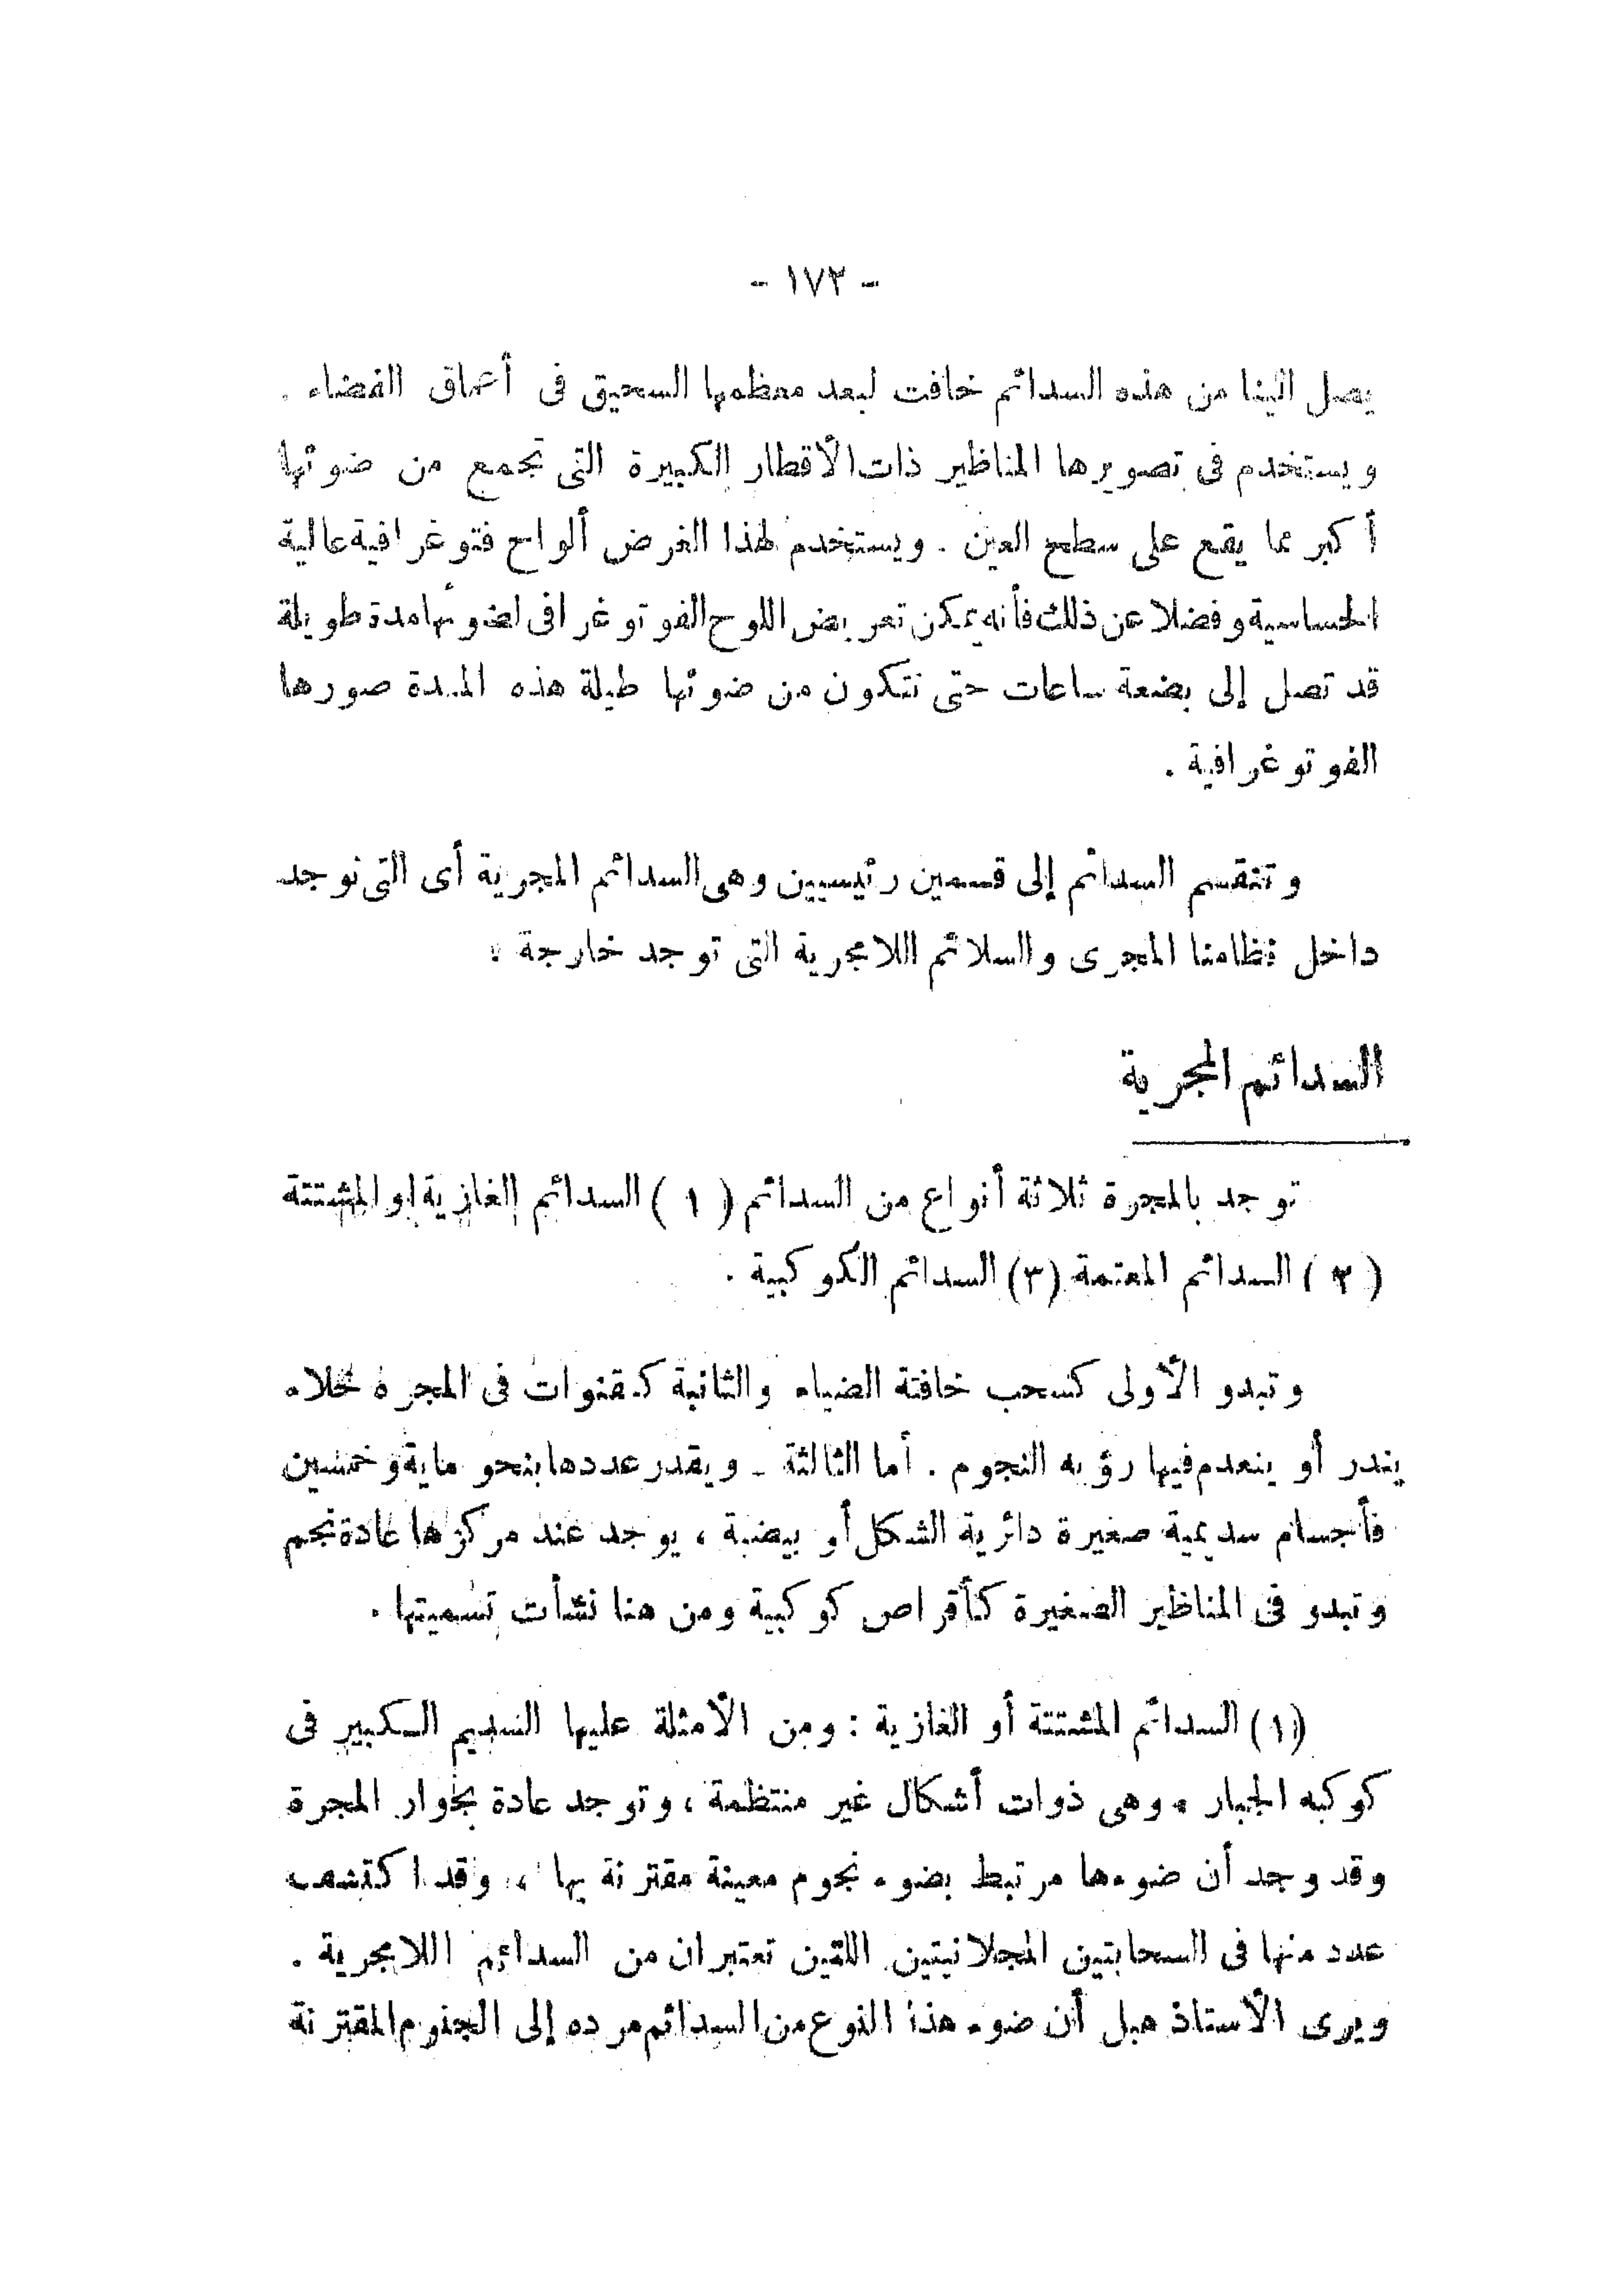 - ١٧٢ -
يصل الينا من هذه السدائم خافت لبعد معظمها السحيق فى أعماق الفضاء .
ويستخدم فى تصويرها المناظير ذات الأقطار الكبيرة التى تجمع من ضوئها
أكبر مما يقع على سطح العين . ويستخدم لهذا الغرض ألواح فتوغرافية عالية
الحساسية وفضلا عن ذلك فأنه يمكن تعريض اللوح الفوتوغرافى لضوئها مدة طويلة
قد تصل إلى بضعة ساعات حتى تتكون من ضوئها طيلة هذه المدة صورها
الفوتوغرافية .
وتنقسم السدائم إلى قسمين رئيسيين وهى السدائم المجرية أى التى توجد
داخل نظامنا المجرى والسلائم اللامجرية التى توجد خارجة .
السدائم المجرية
توجد بالمجرة ثلاثة أنواع من السدائم ( ١ ) السدائم الغازية او المشتتة
( ٢ ) السدائم المعتمة (٣) السدائم الكوكبية .
وتبدو الأولى كسحب خافتة الضياء والثانية كقنوات فى المجرة خلاء
يندر أو ينعدم فيها رؤيه النجوم . أما الثالثة - ويقدر عددها بنحو ماية وخمسين
فأجسام سديمية صغيرة دائرية الشكل أو بيضية ، يوجد عند مركزها عادة نجم
وتبدو فى المناظير الصغيرة كأقراص كوكبية ومن هنا نشأت تسميتها .
(١) السدائم المشتتة أو الغازية : ومن الأمثلة عليها السديم الكبير فى
كوكبه الجبار . وهى ذوات أشكال غير منتظمة ، وتوجد عادة بجوار المجرة
وقد وجد أن ضوءها مرتبط بضوء نجوم معينة مقترنة بها ، وقد اكتشف
عدد منها فى السحابتين المجلانيتين اللتين تعتبران من السدائم اللامجرية .
ويرى الأستاذ هبل أن ضوء هذا النوع من السدائم مرده إلى الجنوم المقترنة